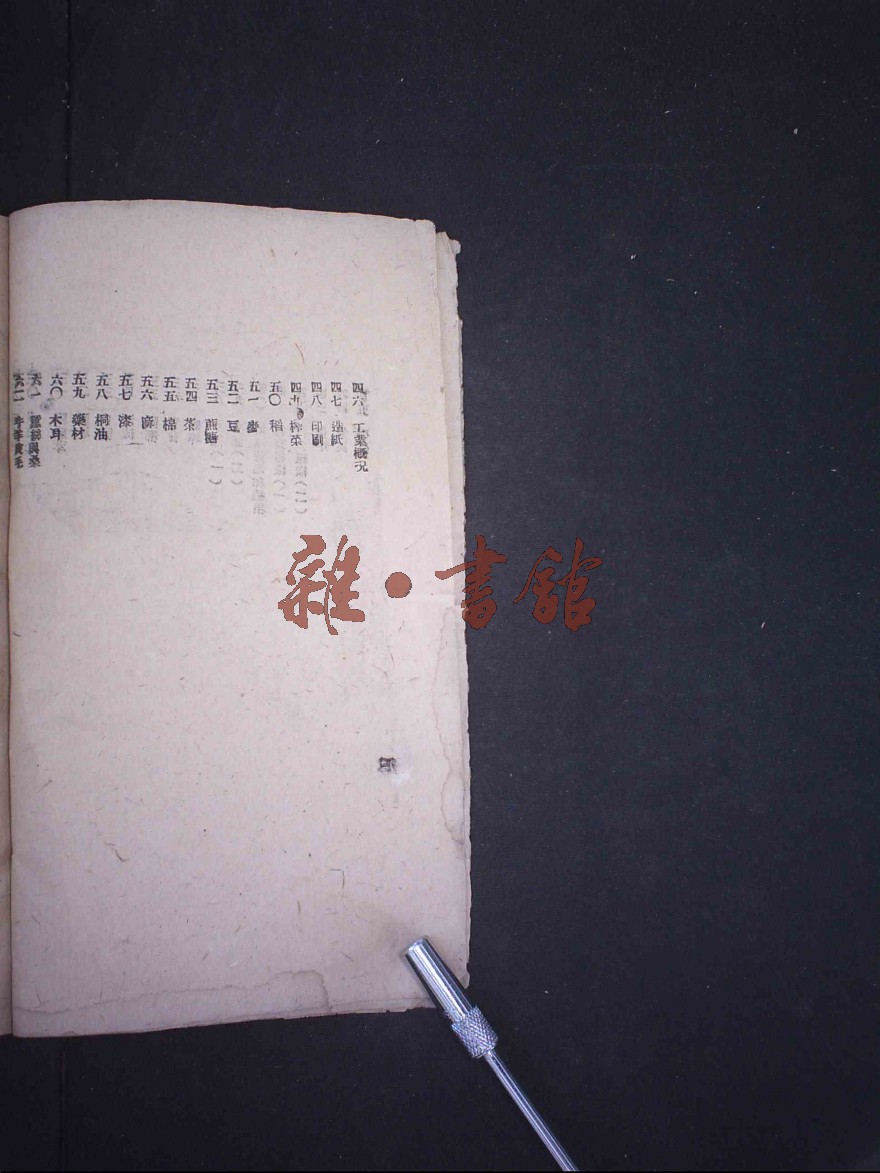 四六 工業概況
四七 造紙
四八 印刷
四九 榨菜
五〇 稻
五一 麥
五二 豆
五三 蔗糖
五四 茶
五五 棉
五六 麻
五七 漆
五八 桐油
五九 藥材
六〇 木耳
六一
六二
四
雜·書館